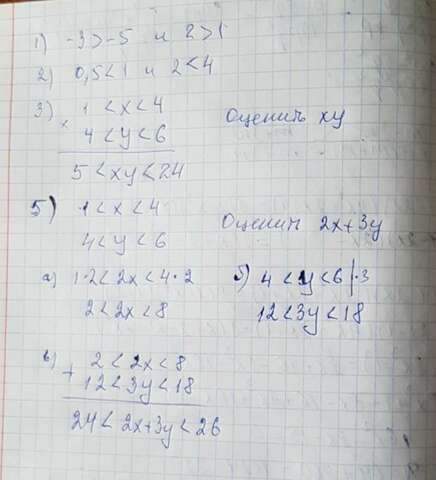 1) -3>-5 и 2>1
2) 0,5<1 и 2<4
3) 1<x<4
× 4<y<6 Оценить xy
5<xy<24
5) 1<x<4
4<y<6 Оценить 2x+3y
а) 1·2<2x<4·2 б) 4<y<6|·3
2<2x<8 12<3y<18
в) 2<2x<8
+ 12<3y<18
24<2x+3y<26